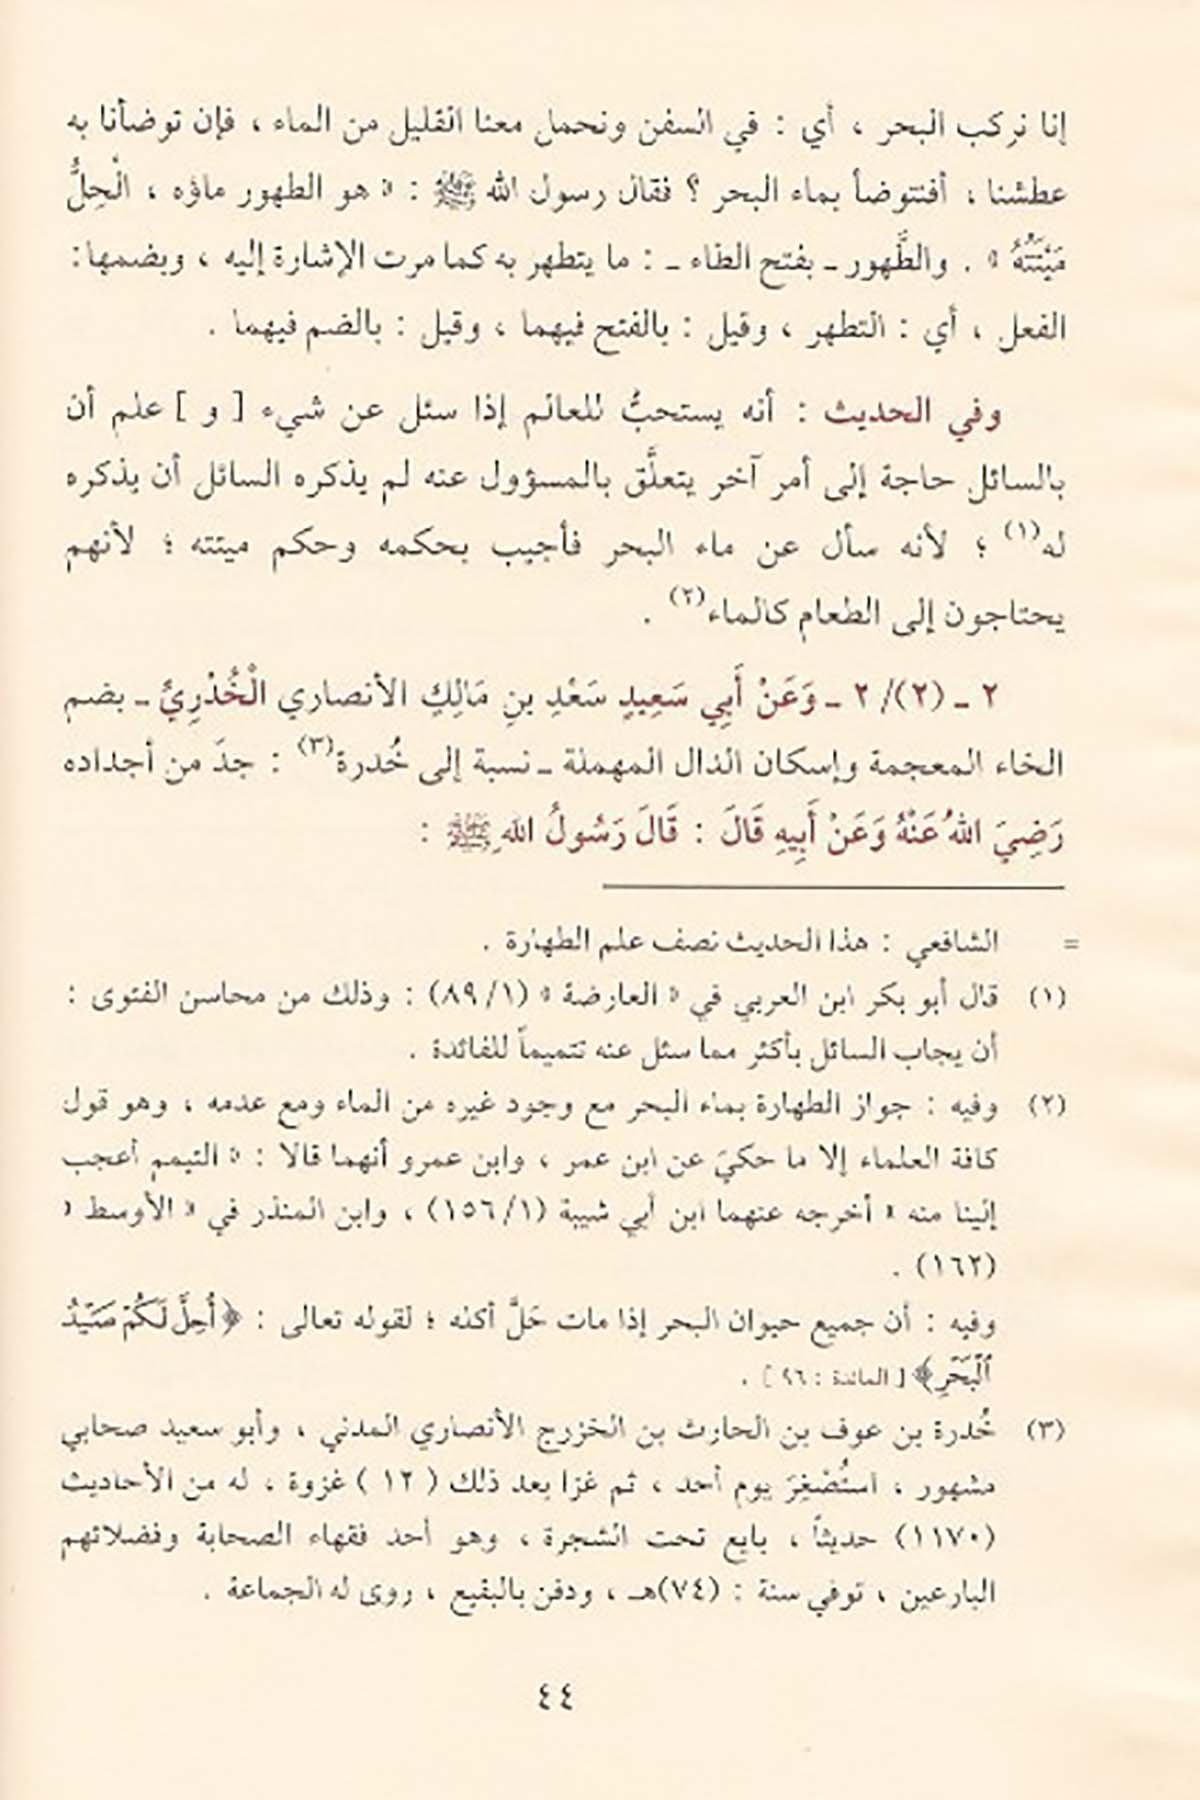 إنا نركب البحر ، أي : في السفن ونحمل معنا القليل من الماء ، فإن توضأنا به
عطشنا ، أفنتوضأ بماء البحر ؟ فقال رسول الله ﷺ : « هو الطهور ماؤه ، الْحِلُّ
مَيْتَتُهُ » . والطَّهور ـ بفتح الطاء ـ : ما يتطهر به كما مرت الإشارة إليه ، وبضمها :
الفعل ، أي : التطهر ، وقيل : بالفتح فيهما ، وقيل : بالضم فيهما .
وفي الحديث : أنه يستحبُّ للعالم إذا سئل عن شيء [ و ] علم أن
بالسائل حاجة إلى أمر آخر يتعلَّق بالمسؤول عنه لم يذكره السائل أن يذكره
له(١) ؛ لأنه سأل عن ماء البحر فأجيب بحكمه وحكم ميتته ؛ لأنهم
يحتاجون إلى الطعام كالماء(٢) .
٢ ـ (٢)/ ٢ ـ وَعَنْ أَبِي سَعِيدٍ سَعْدِ بنِ مَالِكِ الأنصاري الْخُدْرِيِّ ـ بضم
الخاء المعجمة وإسكان الدال المهملة ـ نسبة إلى خُدرة(٣) : جدّ من أجداده
رَضِيَ اللهُ عَنْهُ وَعَنْ أَبِيهِ قَالَ : قَالَ رَسُولُ اللهِ ﷺ :
= الشافعي : هذا الحديث نصف علم الطهارة .
(١) قال أبو بكر ابن العربي في « العارضة » (١/ ٨٩) : وذلك من محاسن الفتوى :
أن يجاب السائل بأكثر مما سئل عنه تتميماً للفائدة .
(٢) وفيه : جواز الطهارة بماء البحر مع وجود غيره من الماء ومع عدمه ، وهو قول
كافة العلماء إلا ما حكيَ عن ابن عمر ، وابن عمرو أنهما قالا : « التيمم أعجب
إلينا منه » أخرجه عنهما ابن أبي شيبة (١/ ١٥٦) ، وابن المنذر في « الأوسط »
(١٦٢) .
وفيه : أن جميع حيوان البحر إذا مات حَلَّ أكله ؛ لقوله تعالى : ﴿أُحِلَّ لَكُمْ صَيْدُ
ٱلْبَحْرِ﴾ [ المائدة : ٩٦] .
(٣) خُدرة بن عوف بن الحارث بن الخزرج الأنصاري المدني ، وأبو سعيد صحابي
مشهور ، استُصْغِرَ يوم أحد ، ثم غزا بعد ذلك ( ١٢ ) غزوة ، له من الأحاديث
(١١٧٠) حديثاً ، بايع تحت الشجرة ، وهو أحد فقهاء الصحابة وفضلائهم
البارعين ، توفي سنة : (٧٤)هـ ، ودفن بالبقيع ، روى له الجماعة .
٤٤